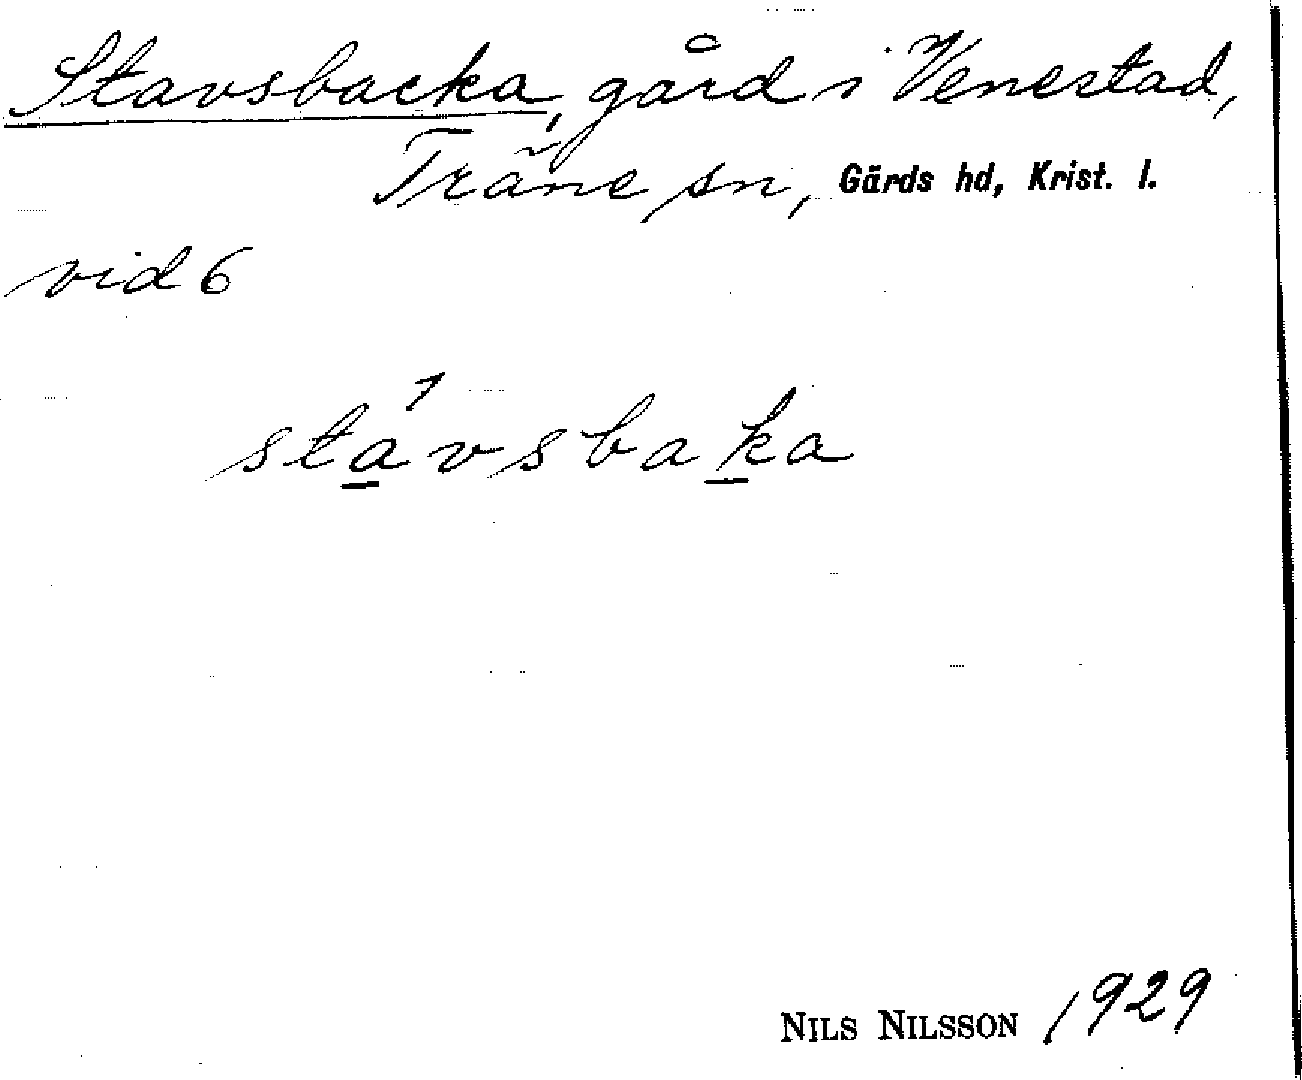 Stavsbacka, gård i Venestad,
Träne sn, Gärds hd, Krist. l.
vid 6
stávsbaka
NILS NILSSON 1929